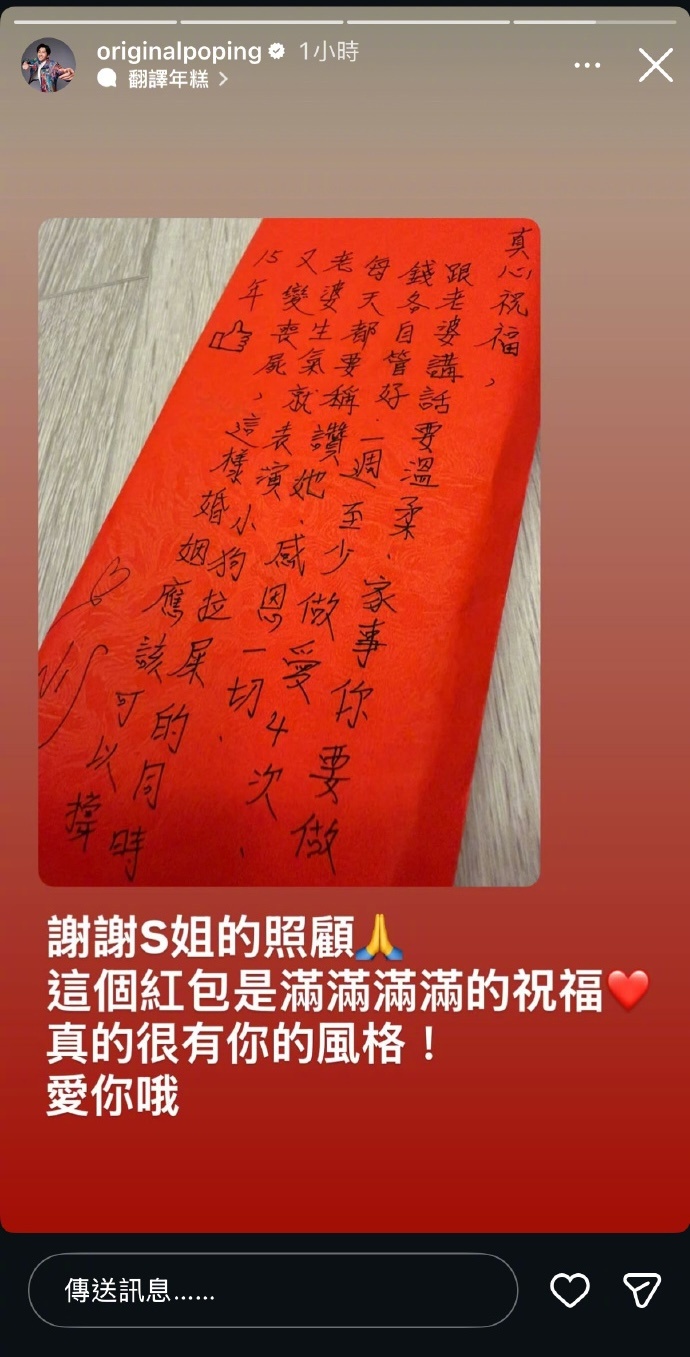 originalpoping 1小時
翻譯年糕
真心祝福,
跟老婆講話要溫柔、家事你要做
錢各自管好.一週至少做愛4次、
每天都要稱讚她、感恩一切.
老婆生氣就表演小狗拉屎的同時
又變喪屍,這樣婚姻應該可以撐
15年
謝謝S姐的照顧🙏
這個紅包是滿滿滿滿的祝福❤️
真的很有你的風格！
愛你哦
傳送訊息......